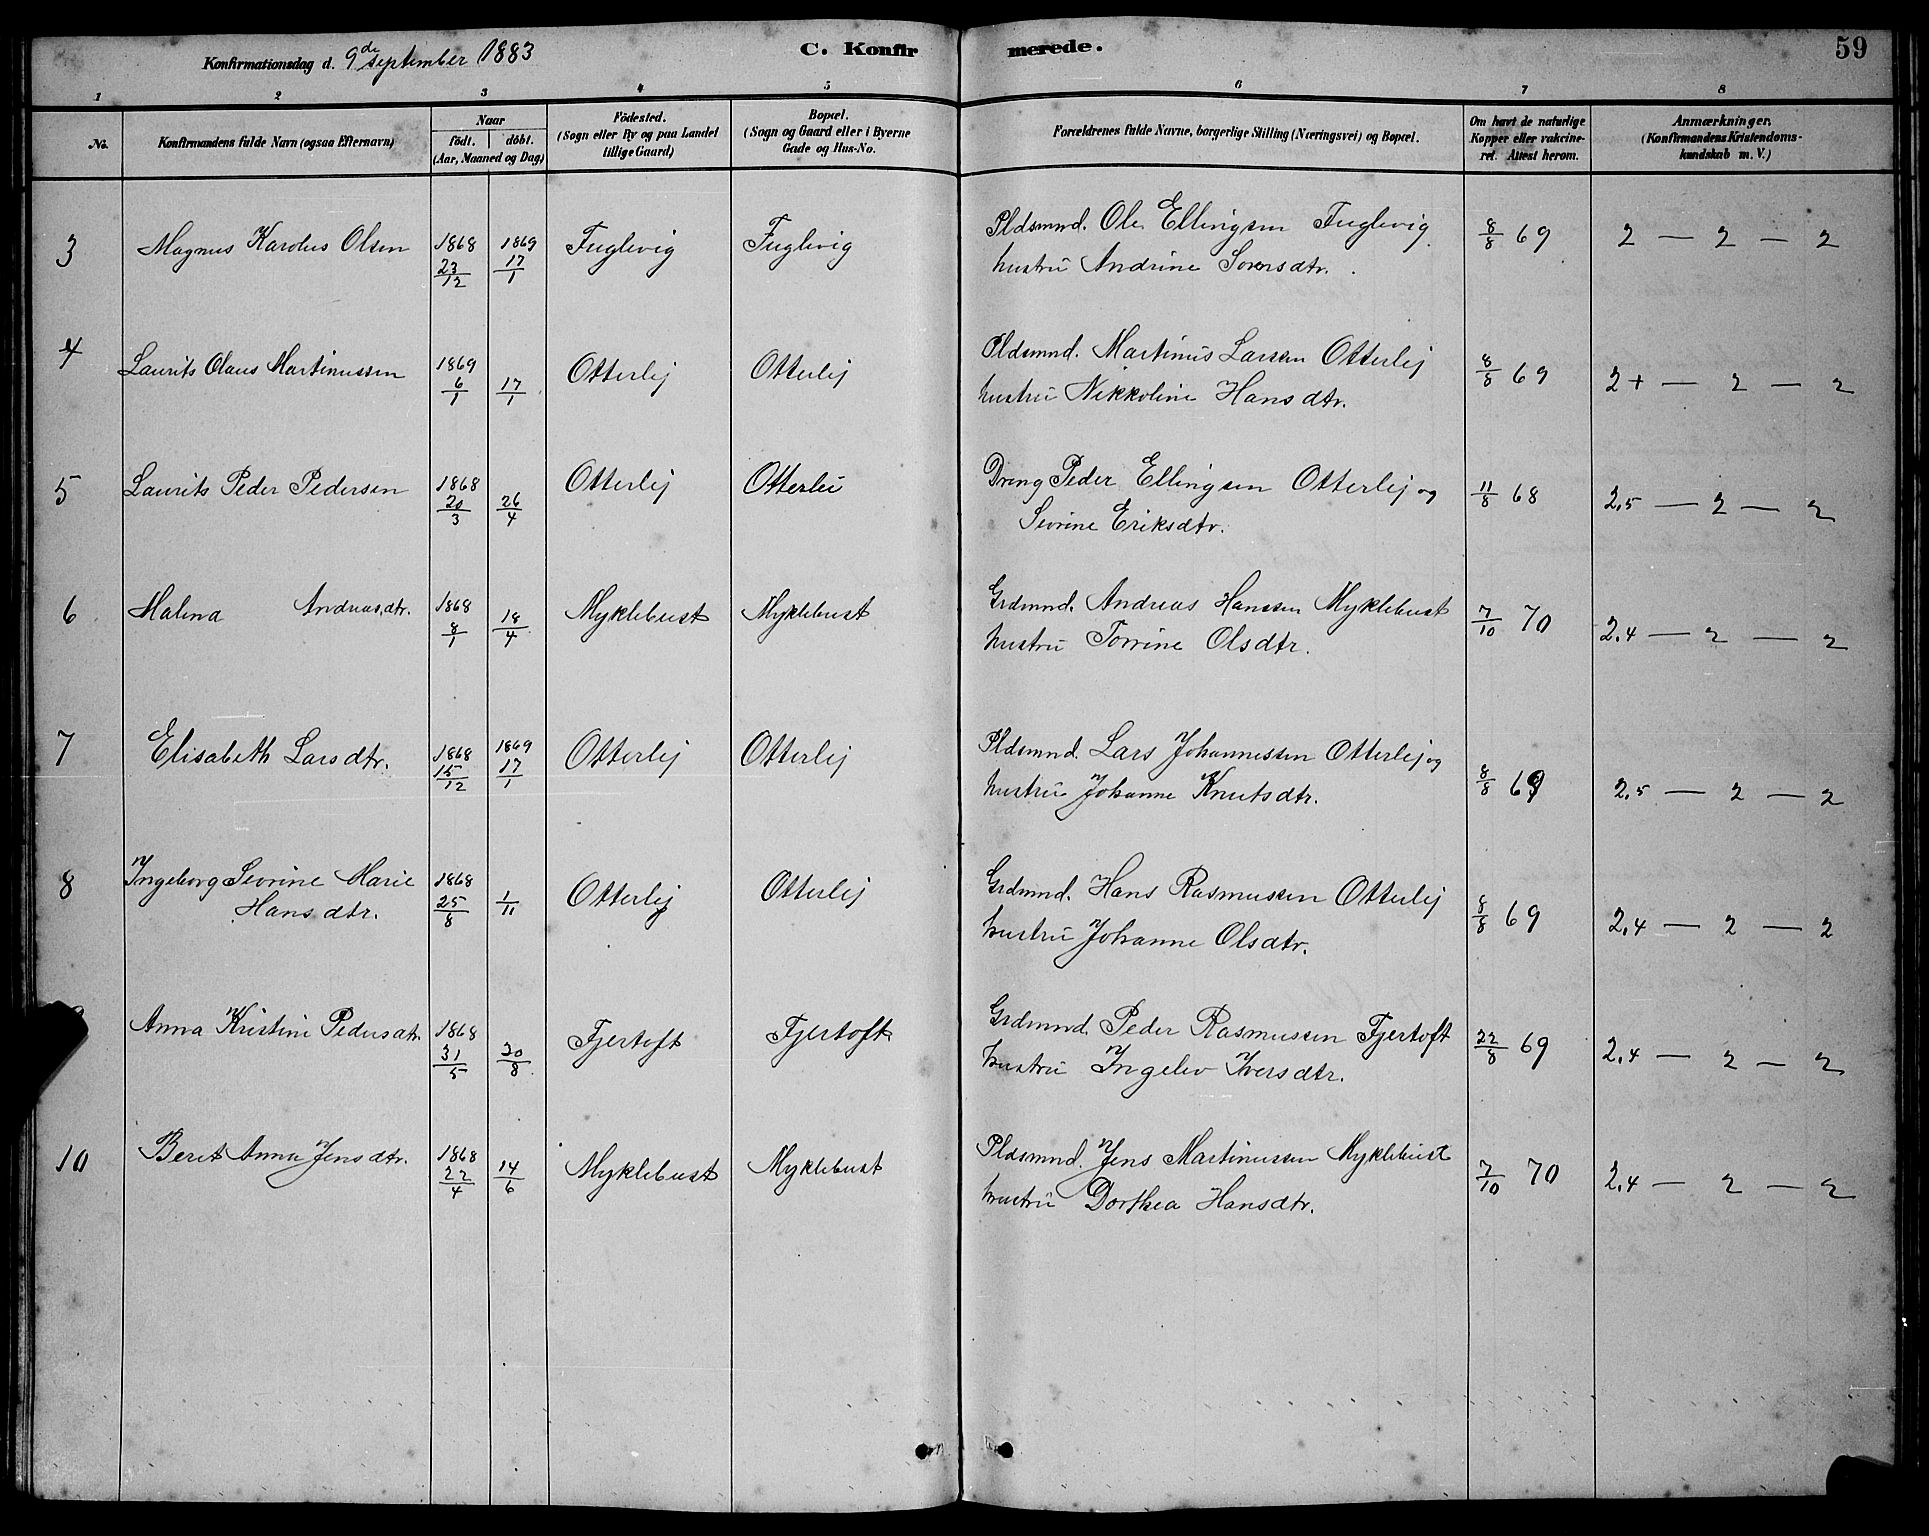 Konfirmationsdag d. 9de September 1883
C. Konfirmerede.
59
1 2 3 4 5 6 7 8
No.
Konfirmandens fulde Navn (ogsaa Efternavn)
Naar
födt. döbt.
(Aar, Maaned og Dag)
Födested.
(Sogn eller By og paa Landet
tillige Gaard)
Bopæl.
(Sogn og Gaard eller i Byerne
Gade og Hus-No.
Forældrenes fulde Navne, borgerlige Stilling (Næringsvei) og Bopæl.
Om havt de naturlige
Kopper eller vakcine-
ret. Attest herom.
Anmærkninger.
(Konfirmandens Kristendoms-
kundskab m. V.)
3 Magnus Karolus Olsen 1868 23/12 1869 17/1 Fuglevig Fuglevig Pldsmnd. Ole Ellingsen Fuglevig 8/8 69 2 — 2 — 2
hustru Andrine Sorensdtr.
4 Laurits Olaus Martinussen 1869 6/1 17/1 Otterlej Otterlej Pldsmnd. Martinus Larsen Otterlej 8/8 69 2+ — 2 — 2
hustru Nikkoline Hansdtr.
5 Laurits Peder Pedersen 1868 20/3 26/4 Otterlej Otterlei Dreng Peder Ellingsen Otterlej og 11/8 68 2,5 — 2 — 2
Sevrine Eriksdtr.
6 Malena Andreasdtr. 1868 8/1 18/4 Myklebust Myklebust Grdmnd. Andreas Hanssen Myklebust 7/10 70 2,4 — 2 — 2
hustru Torrine Olsdtr.
7 Elisabeth Larsdtr. 1868 15/12 1869 17/1 Otterlej Otterlej Pldsmnd. Lars Johannessen Otterlej og 8/8 69 2,5 — 2 — 2
hustru Johanne Knutsdtr.
8 Ingeborg Sevrine Marie 1868 25/8 1/11 Otterlej Otterlej Grdmnd. Hans Rasmussen Otterlej 8/8 69 2,4 — 2 — 2
Hansdtr. hustru Johanne Olsdtr.
Anna Kristine Pedersdtr. 1868 31/5 30/8 Fjertoft Fjertoft Grdmnd. Peder Rasmussen Fjertoft 22/8 69 2,4 — 2 — 2
hustru Ingelev Iversdtr.
10 Beret Anna Jensdtr. 1868 22/4 14/6 Myklebust Myklebust Pldsmnd. Jens Martinussen Myklebust 7/10 70 2,4 — 2 — 2
hustru Dorthea Hansdtr.